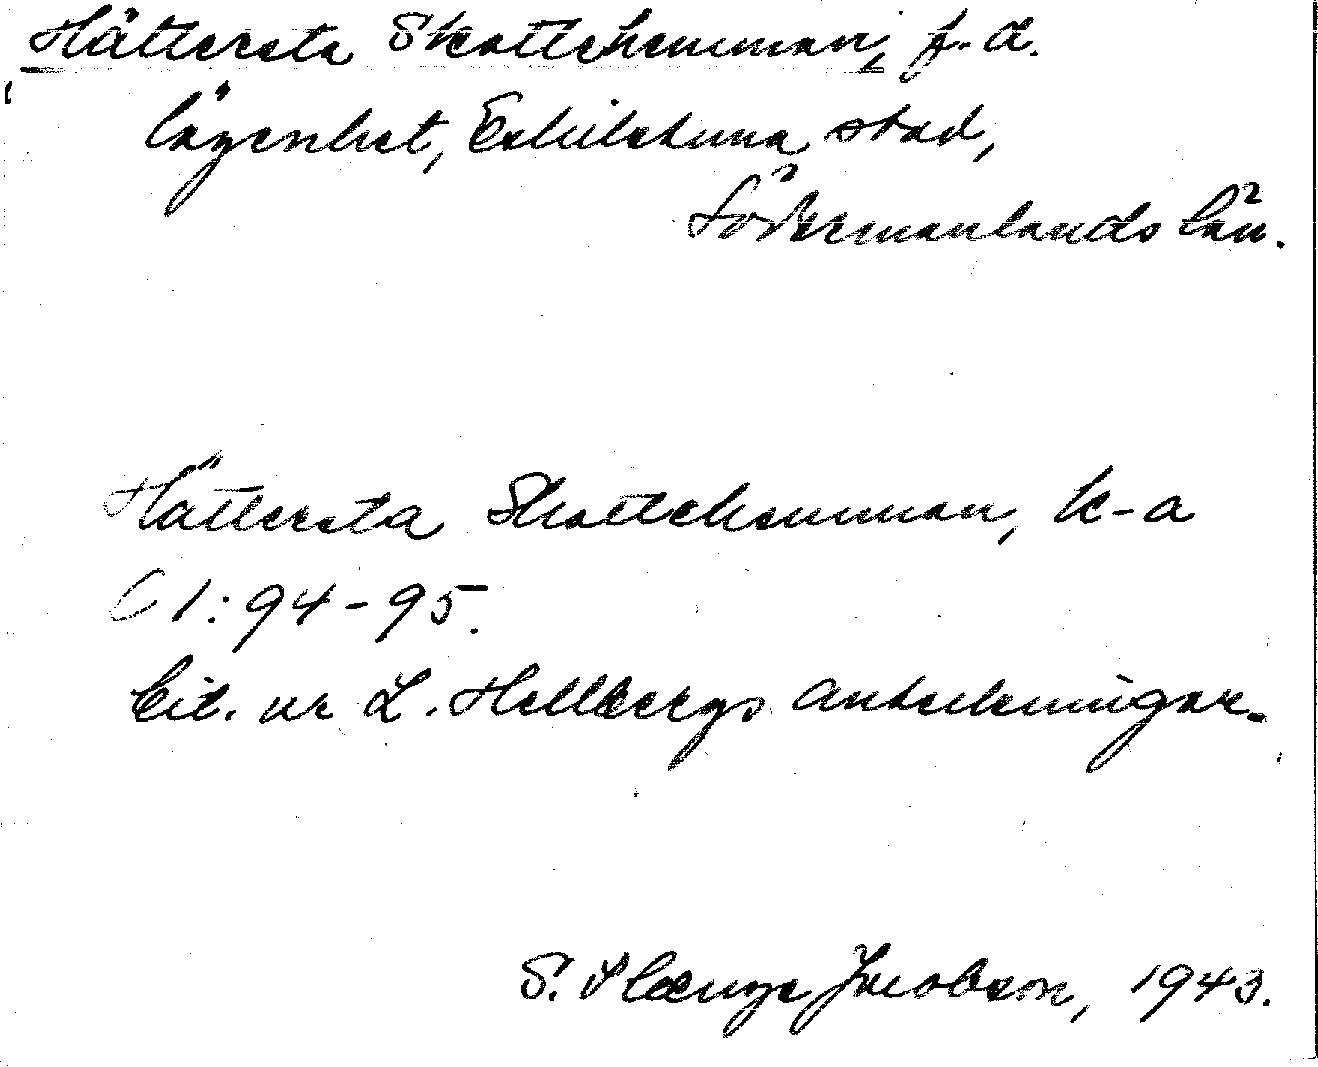 Hättersta Skattehemman, f.d.
lägenhet, Eskilstuna stad,
Södermanlands län.
Hättersta Skattehemman, k-a
C 1:94-95.
Cit. ur L. Hellbergs anteckningar.
S. Jacobson, 1943.